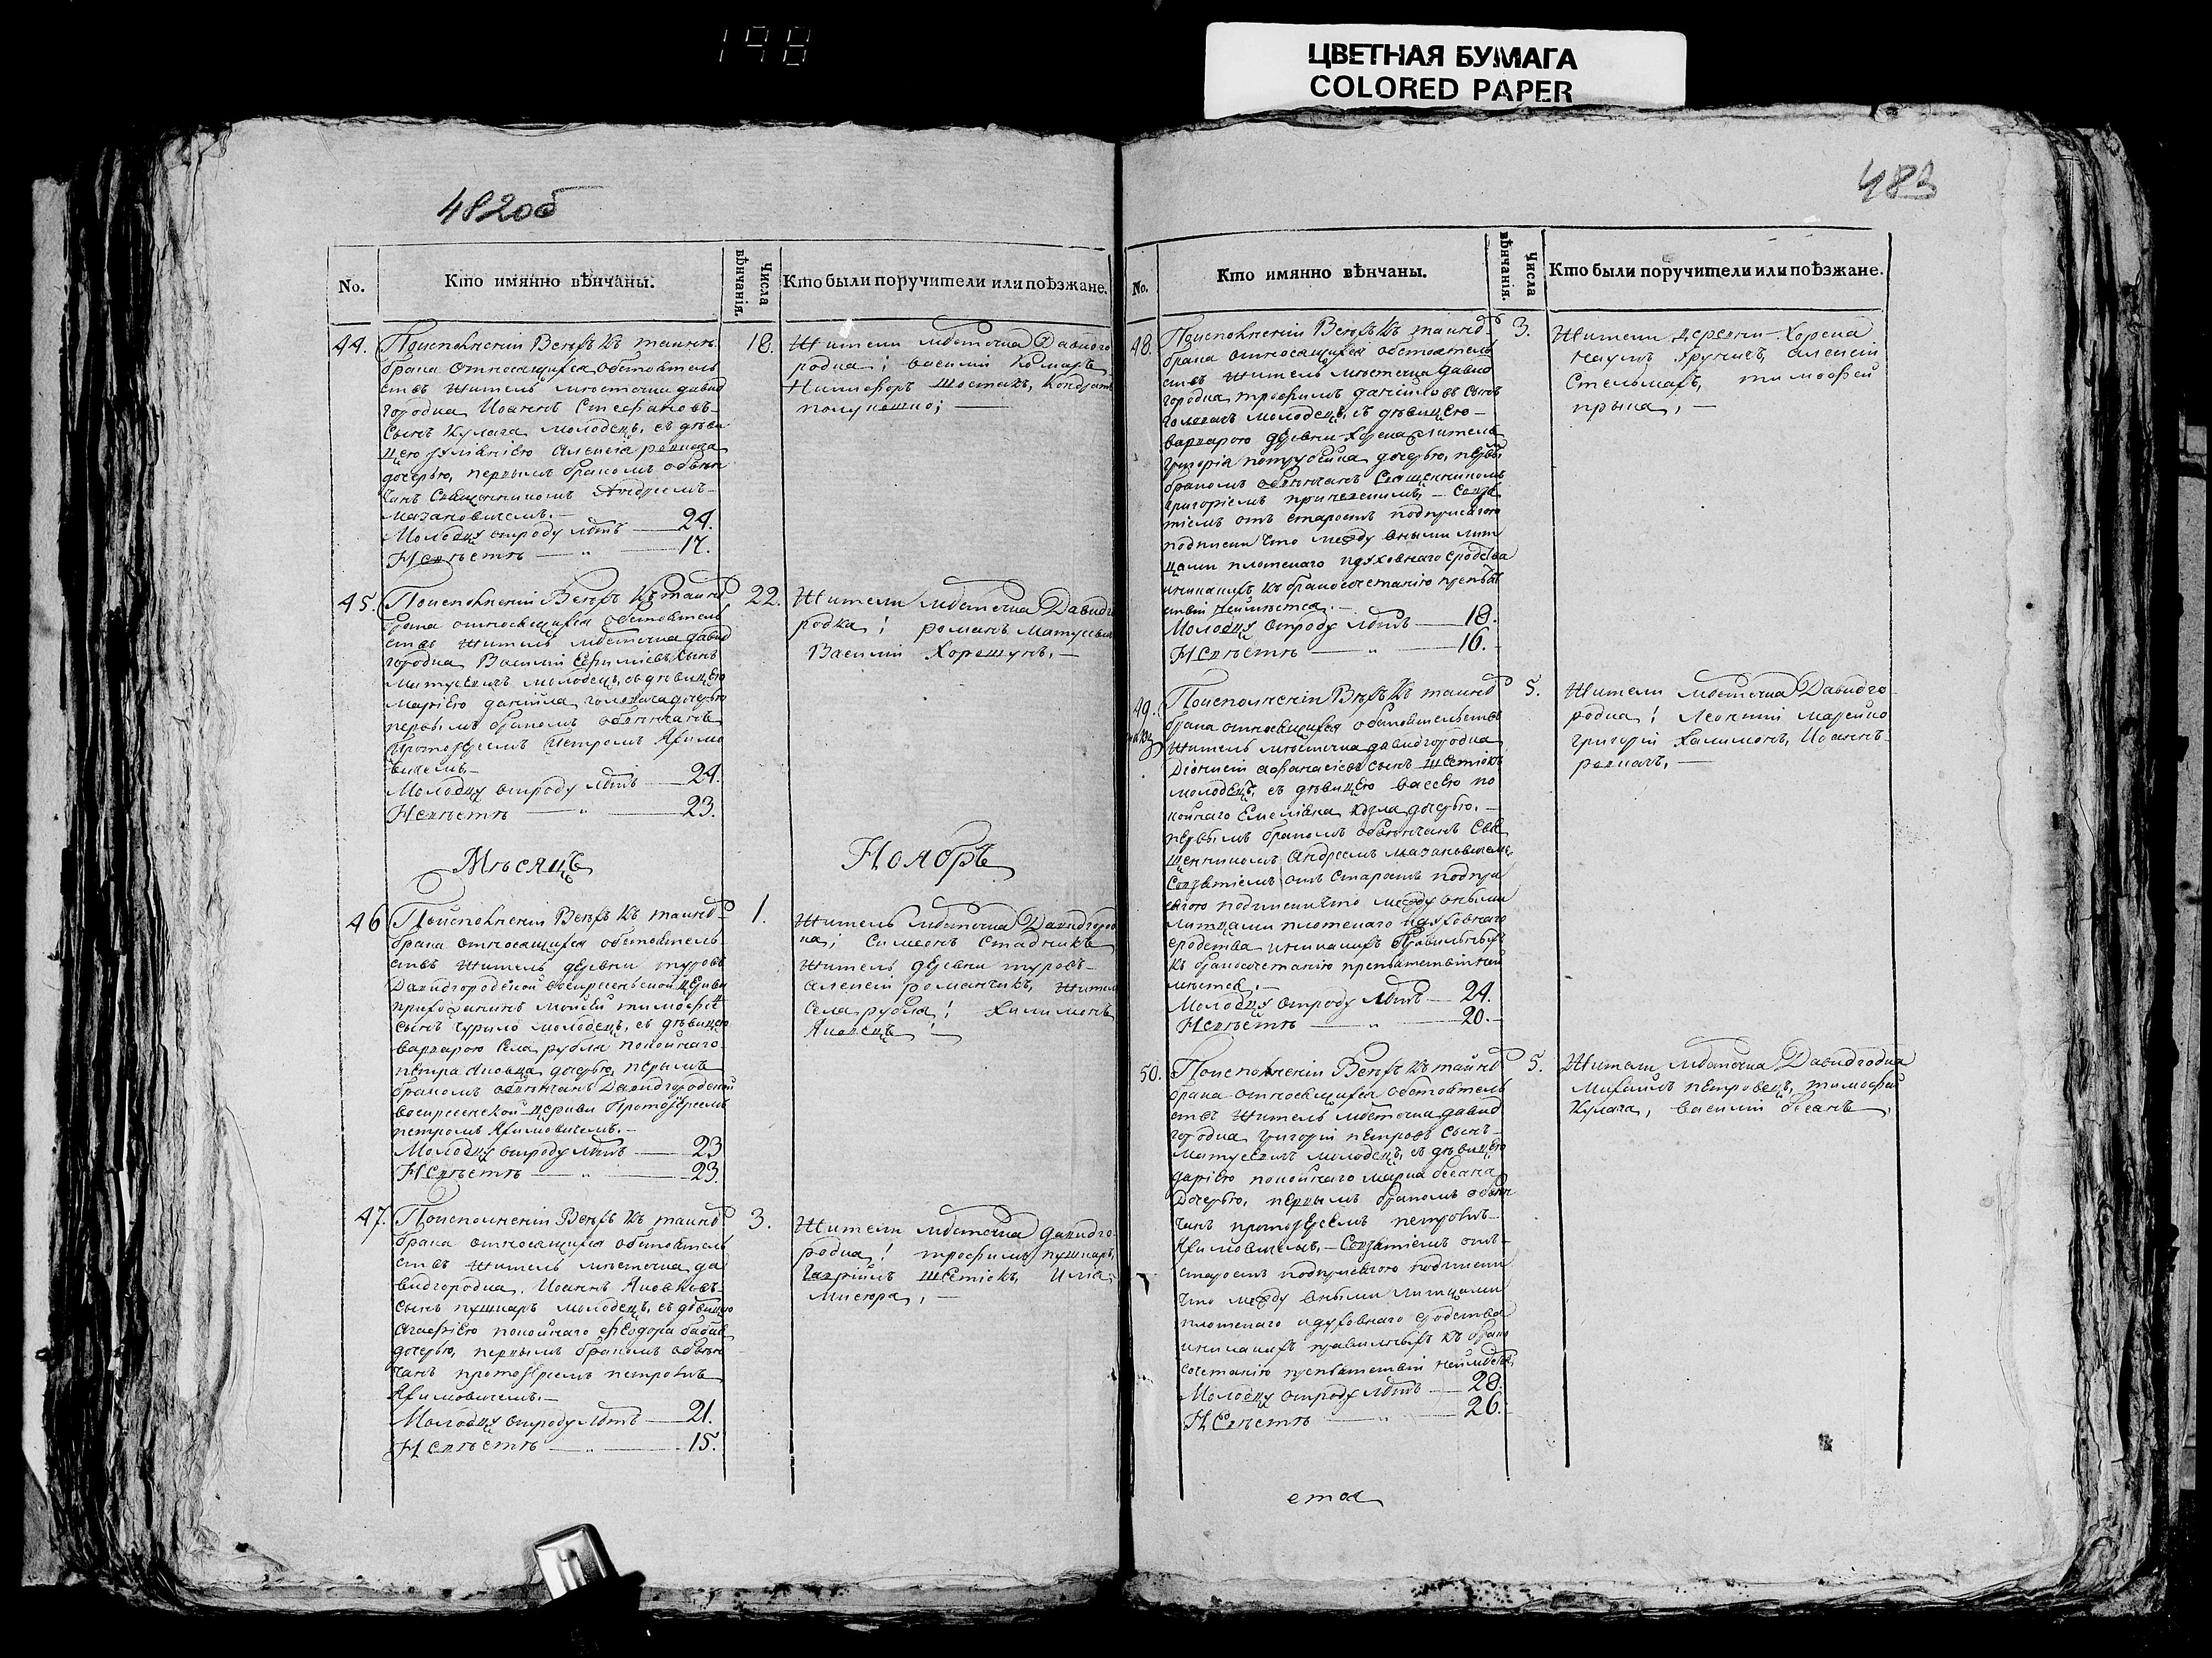 198
ЦВЕТНАЯ БУМАГА
COLORED PAPER
482об
No.
Кто имянно вѣнчаны.
Числа вѣнчанія.
Кто были поручители или поѣзжане.
44.
По исполненіи Всѣхъ Къ таинст.
брака относящихся обстоятель
ствъ житель мѣстечка давид
городка Иоаннъ Стефановъ
Сынъ Кулага молодецъ, съ дѣви
цею Алексія
дочерью, первымъ бракомъ обвѣн
чанъ Священникомъ Андреемъ
Мазановичемъ.—
Молодцу отроду лѣтъ — 24.
Невѣстѣ — „ — 17.
18.
Жители мѣстечка Давидго
родка; василій Комаръ
Никифоръ Шостакъ, Кондратъ
полукошко; —
45.
По исполненіи Всѣхъ Къ таинст
брака относящихся обстоятель
ствъ житель мѣстечка давид
городка Василий Ефимиевъ сынъ
Матусевичъ молодецъ, съ дѣвицею
Маріею даніила дочерью
первымъ бракомъ обвѣнчанъ
Протоіереемъ Петромъ Якимо
вичемъ.—
Молодцу отроду лѣтъ — 24.
Невѣстѣ — „ — 23.
22.
Жители мѣстечка Давидго
родка; романъ Матусевич
Василій Хорошунъ. —
Мѣсяцъ
Ноябрь
46
По исполненіи Всѣхъ Къ таинст
брака относящихся обстоятель
ствъ житель деревни туровъ
Давидгородской воскресенской Церкви
прихожанинъ Моисей тимофее
сынъ Чурило молодецъ, съ дѣвицею
варварою Села рубля покойнаго
петра Яновца дочерью, первымъ
бракомъ обвѣнчанъ Давидгородской
воскресенской церкви Протоіереемъ
петромъ Якимовичемъ.—
Молодцу отроду лѣтъ — 23
Невѣстѣ — „ — 23.
1.
Житель мѣстечка Давидгород
ка; Симеонъ Стадникъ
житель деревни туровъ
алексій романчикъ, жител
Села рубля; Филимонъ
Яновецъ —
47.
По исполненіи Всѣхъ Къ таинст
брака относящихся обстоятель
ствъ житель мѣстечка да
видгородка. Иоаннъ Яковлевъ
сынъ пушкаръ молодецъ, съ дѣвицею
Агафіею покойнаго феодора
дочерью, первымъ бракомъ обвѣн
чанъ протоіереемъ петромъ
Якимовичемъ.—
Молодцу отроду лѣтъ — 21.
Невѣстѣ — „ — 15.
3.
Жители мѣстечка давидго
родка; трофимъ пушкаръ,
Гавріилъ Шетікъ, Илія
Мисюра, —
483
No.
Кто имянно вѣнчаны.
Числа вѣнчанія.
Кто были поручители или поѣзжане.
48.
По исполненіи Всѣхъ Къ таинст
брака относящихся обстоятель
ствъ житель мѣстечка Давид
городка трофимъ даніиловъ сынъ
молодецъ, съ дѣвицею
варварою деревни Хорска жителя
григорія дочерью, первы
бракомъ обвѣнчанъ Священникомъ
григоріемъ — Совзя
тіемъ отъ старостъ
подписки что между оными лит
цами плотскаго идуховнаго сродства
иникакихъ къ бракосочетанію препят
ствій неимѣется.—
Молодцу отроду лѣтъ — 18.
Невѣстѣ — „ — 16.
3.
Жители деревни Хорска
наумъ Грушеч, алексій
Стельмахъ, тимофей
прыка, —
49.
По исполненіи Всѣхъ Къ таинст
брака относящихся обстоятельствъ
Житель мѣстечка давидгородка
Діонисій афанасіевъ сынъ Шетікъ
молодецъ, съ дѣвицею вассою по
койнаго Емеліяна Козла дочерью,—
первымъ бракомъ обвѣнчанъ Свя
щенникомъ Андреемъ Мазановичемъ
Совзятіемъ отъ Старостъ
подписки что между оными
литцами плотскаго идуховнаго
сродства иникакихъ Правильныхъ
къ бракосочетанію препятствій неи
мѣется.—
Молодцу отроду лѣтъ — 24.
Невѣстѣ — „ — 20.—
5.
Жители мѣстечка Давидго
родка; Леонтій
григорій Халимонъ, Иоаннъ
50.
По исполненіи Всѣхъ Къ таинст
брака относящихся обстоятель
ствъ Житель мѣстечка давид
городка григорій петровъ Сынъ
Матусевичъ молодецъ, съ дѣвицею
даріею покойнаго марка бесана
дочерью, первымъ бракомъ обвѣн
чанъ протоіереемъ петромъ
Якимовичемъ,— Совзятіемъ отъ
старостъ подписки
что между оными литцами
плотскаго идуховнаго сродства
иникакихъ правильныхъ къ брако
сочетанію препятствій неимѣетъ,
Молодцу отроду лѣтъ — 28.
Невѣстѣ — „ — 26.
5.
Жители мѣстечка Давидгодка
Михаилъ петровецъ, тимофей
Кулага, василій бесанъ,